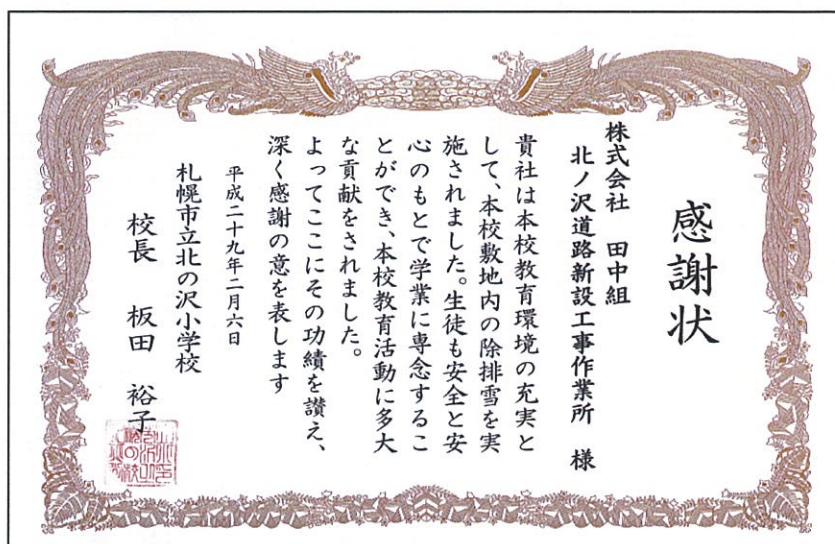 感謝状
株式会社 田中組
北ノ沢道路新設工事作業所 様
貴社は本校教育環境の充実と
して、本校敷地内の除排雪を実
施されました。生徒も安全と安
心のもとで学業に専念するこ
とができ、本校教育活動に多大
な貢献をされました。
よってここにその功績を讃え、
深く感謝の意を表します
平成二十九年二月六日
札幌市立北の沢小学校
校長 板田 裕子